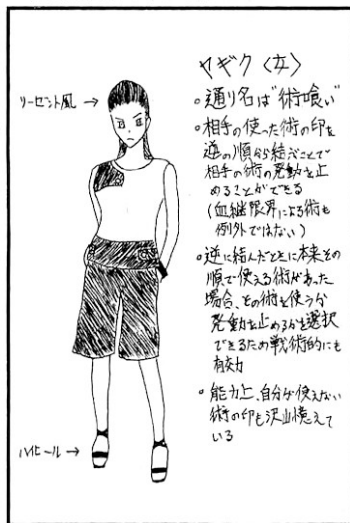 ヤギク〈女〉
リーゼント風→
。通り名は"術喰い"
。相手の使った術の印を
逆の順から結ぶことで
相手の術の発動を止
めることができる
(血継限界による術も
例外ではない)
。逆に結んだときに本来その
順で使える術があった
場合、その術を使うか
発動を止めるかを選択
できるため戦術的にも
有効
。能力上、自分が使えない
術の印も沢山憶えて
いる
ハイヒール→